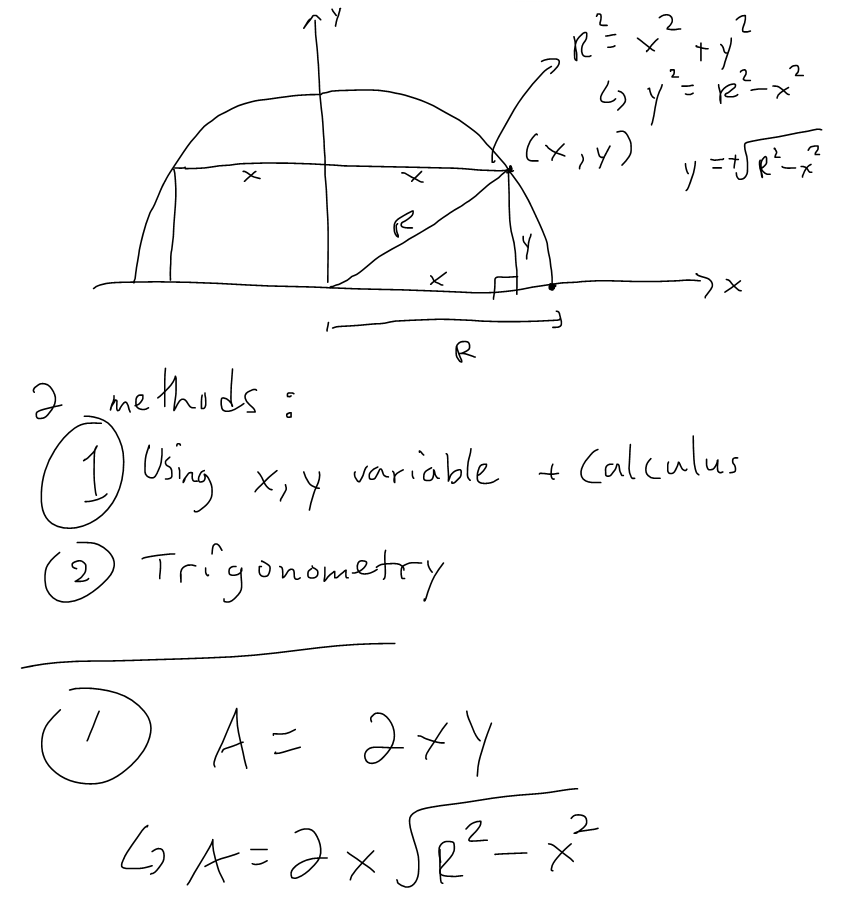 y
R² = x² + y²
↳ y² = R² - x²
(x, y)
y = +√(R² - x²)
x x
R
y
x
x
R
2 methods:
① Using x, y variable + Calculus
② Trigonometry
① A = 2xy
↳ A = 2x√(R² - x²)